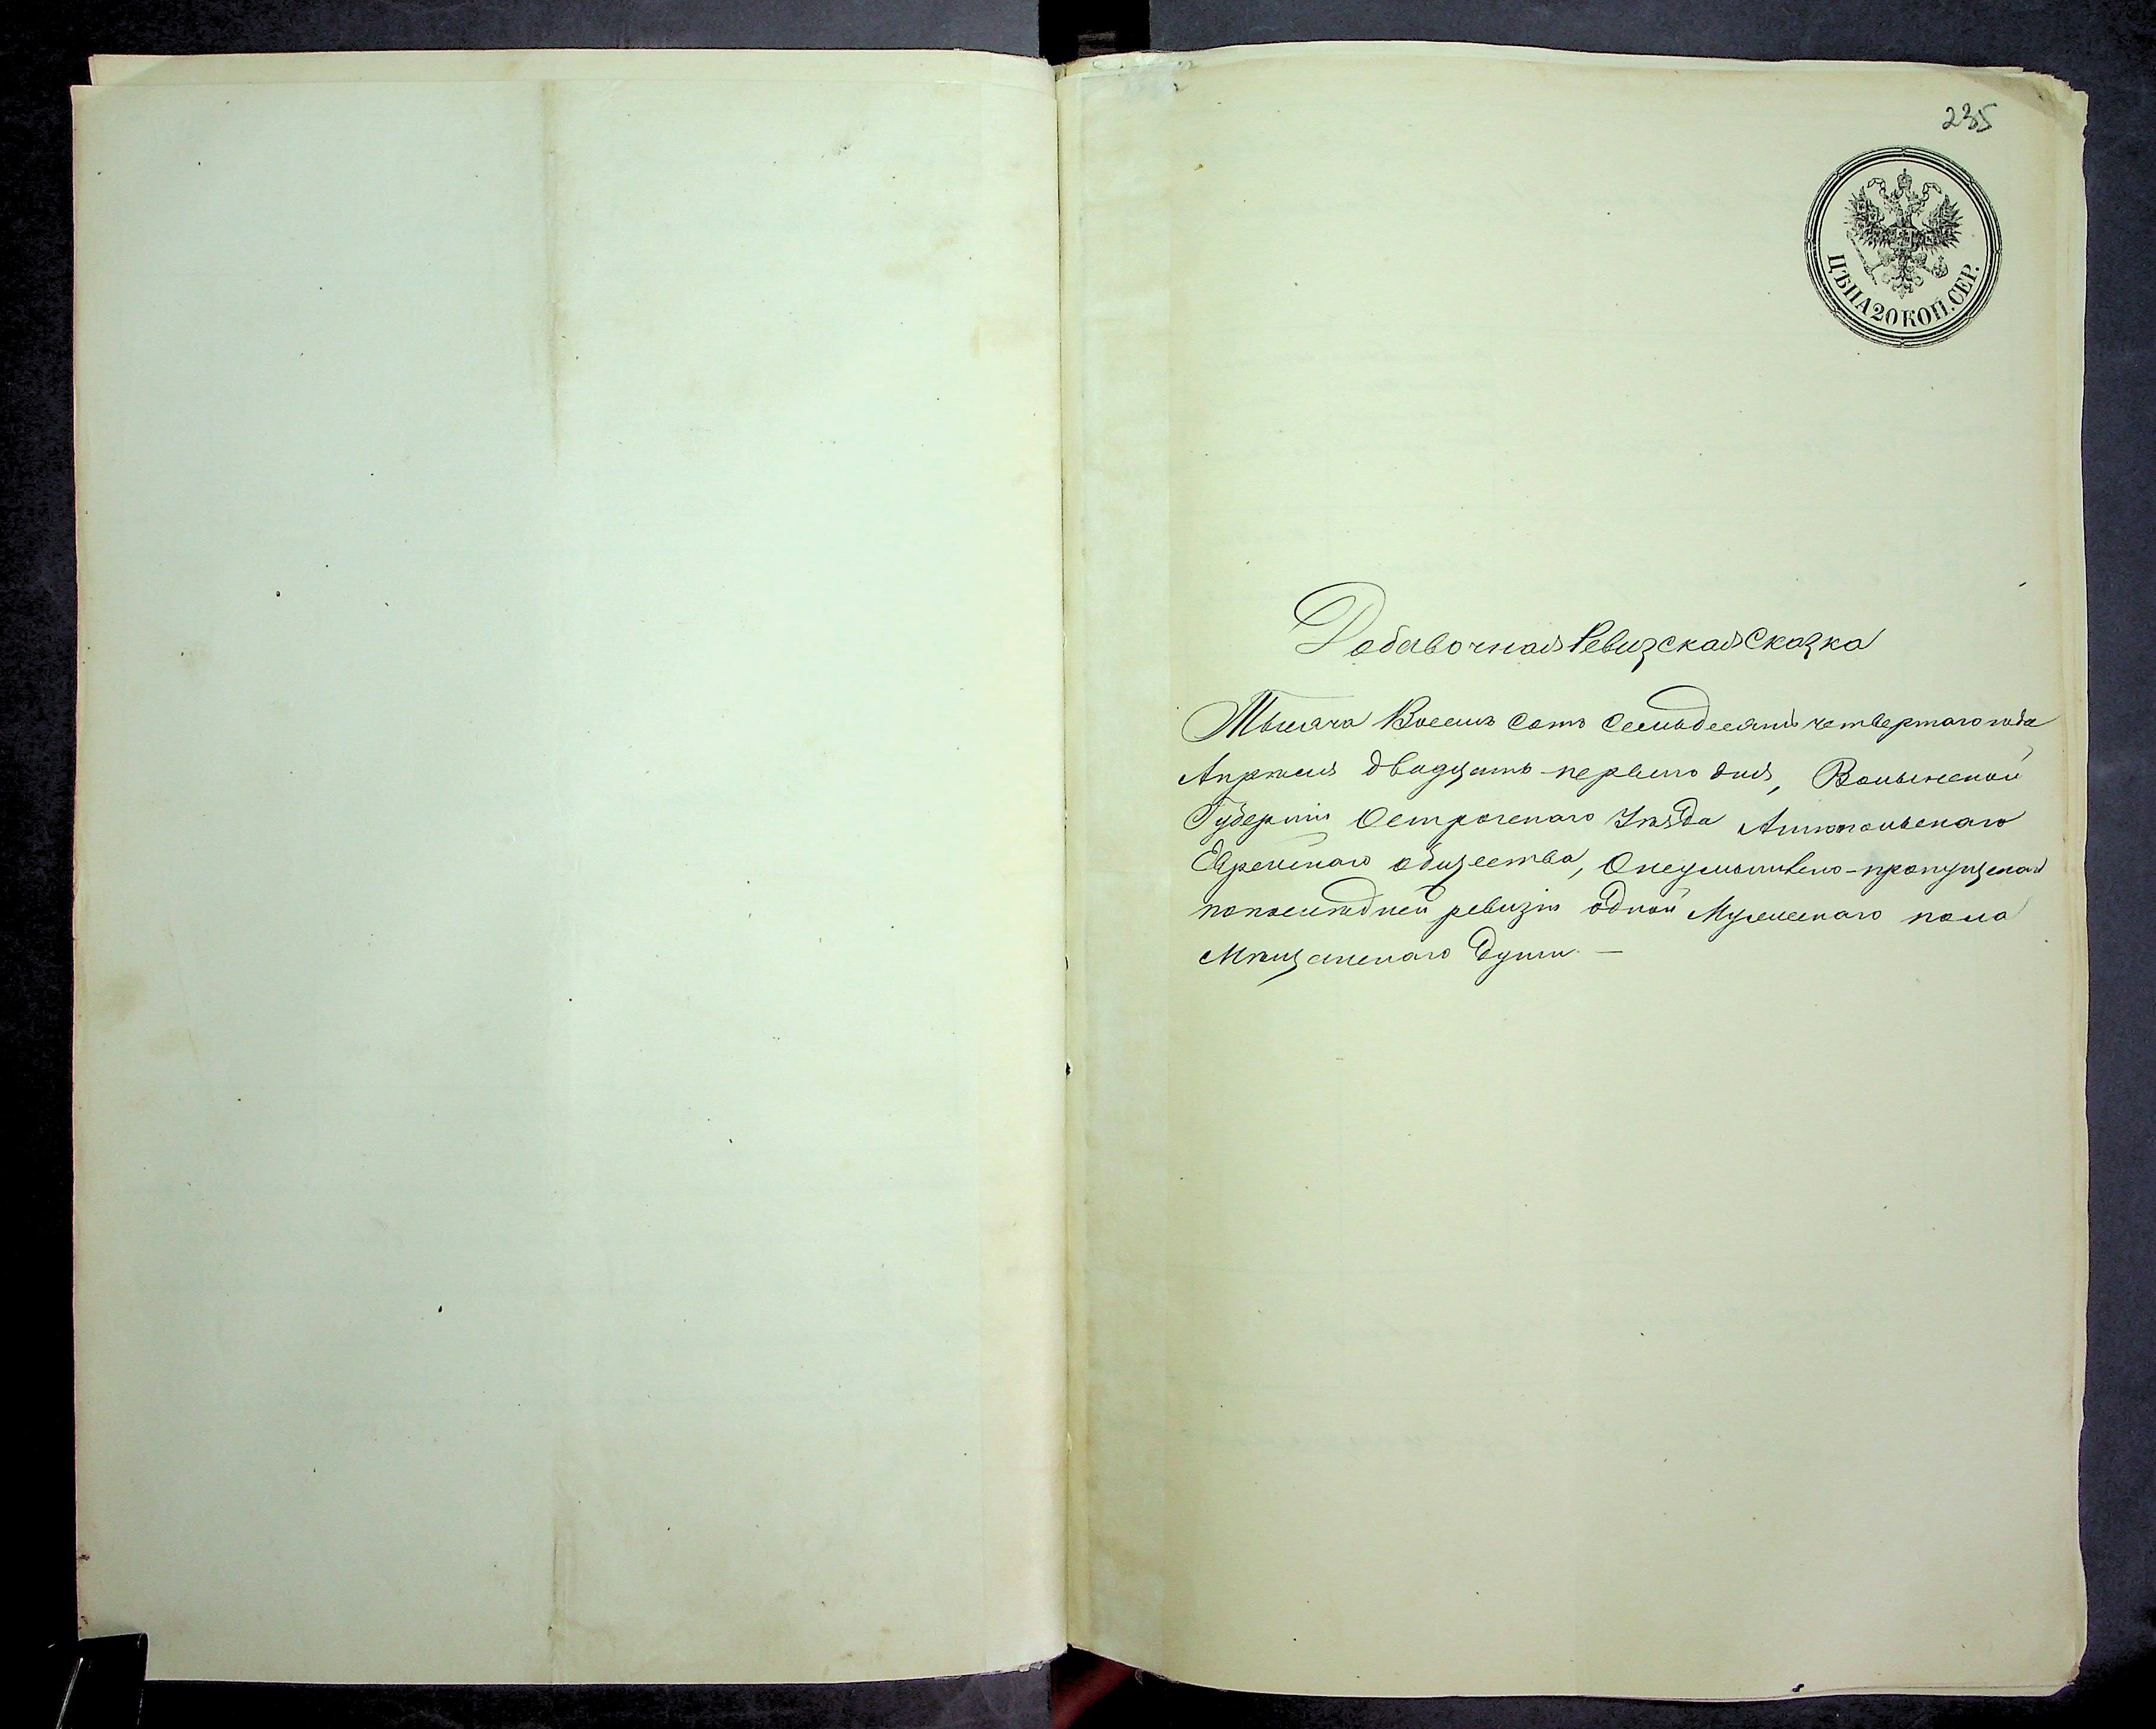 235
ЦѢНА 20 КОП. СЕР.
Добавочная Ревизская Сказка
Тысяча Восемь сотъ Семьдесятъ четвертаго года
Апрѣля двадцать-перваго дня, Волынской
Губерніи Острогскаго Уѣзда Аннопольскаго
Еврейскаго общества, О неумышлено-пропущеной
по послѣдней ревизіи одной Мужескаго пола
Мѣщанскаго Души. —